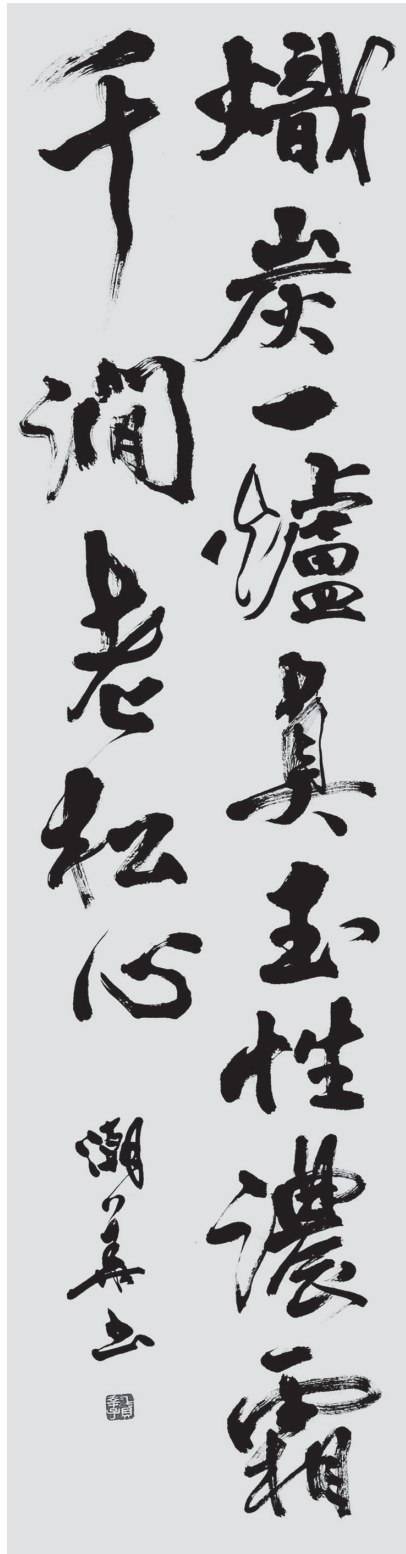 熾炭一爐真玉性濃霜
千澗老松心
潮華書